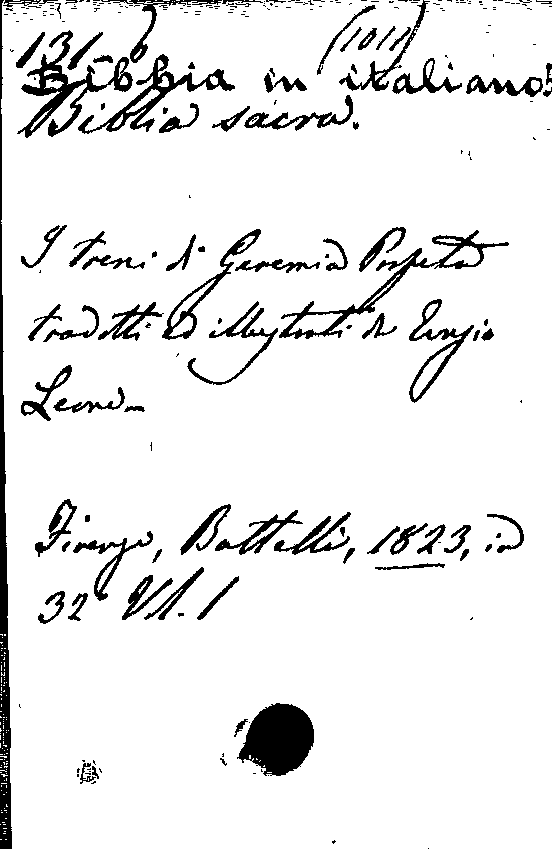 131 b (1011)
Bibbia in italiano
Biblia sacra.
I treni di Geremia Profeta
tradotti ed illustrati da Evasio
Leone
Firenze, Battelli, 1823, in
32° Vol. 1